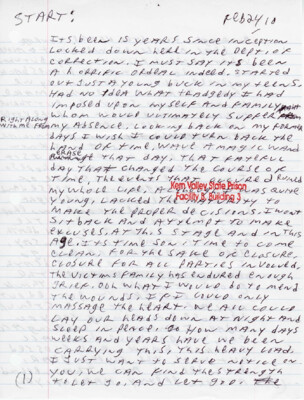 START:
Feb 24, 10
It's been 15 years since inception
locked down here in the Dept. of
correction. I must say it's been
a horrific ordeal indeed. Started
out just a young buck in my teens.
Had no idea what tragedy it had
imposed upon myself and family
Right along with me from
whom would ultimately suffer from
my absence. Looking back on my former
days I wish I could turn back the
hand of time, wave a magic wand
erase
that day, that fateful
day that changed the course of
time, the event that occurred ruined
my whole life. was quite
young, lacked the to
make the proper decisions. I won't
sit back and attempt to make
excuses. At this stage and in this
Age, it's time son, time to come
clean. For the sake of closure,
closure for all parties involved.
The victims family has endured enough
grief. Ooh what I would do to mend
the wounds. If I could only
massage the heart. We all could
lay our head down at night and
sleep in peace. Ooh how many days
weeks and years have we been
carrying this, this heavy load.
I just want to serve notice in
you, we can find the strength
to let go. And let God. The
Kern Valley State Prison
Facility B, Building 3
(1)